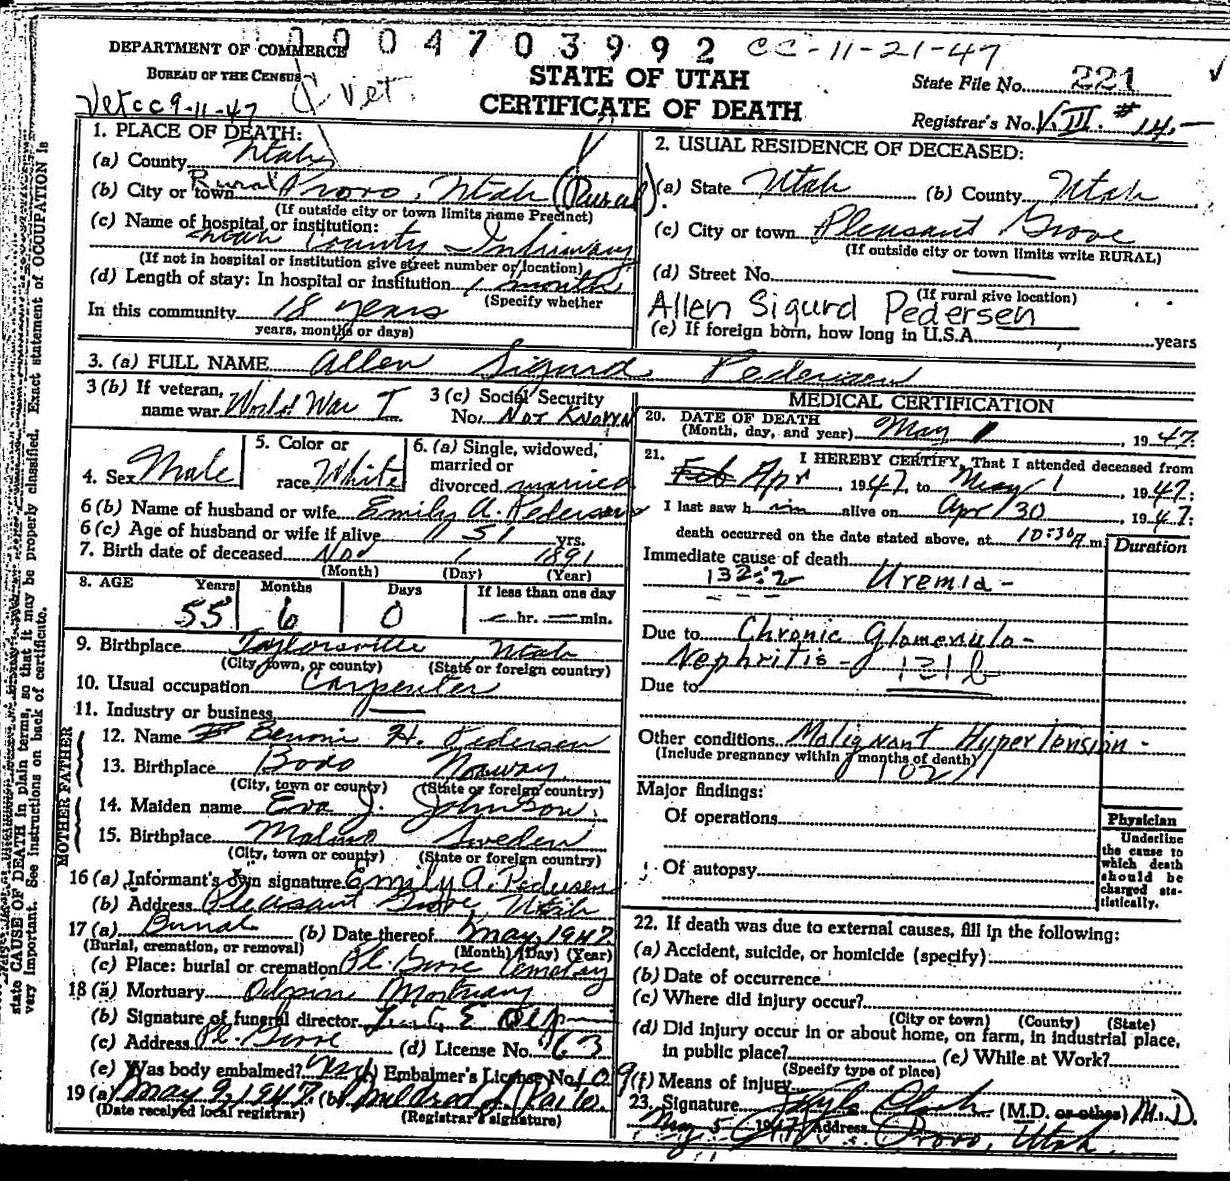 0004703992 CC-11-21-47
DEPARTMENT OF COMMERCE
BUREAU OF THE CENSUS
Vet cc 9-11-47 & vet.
STATE OF UTAH
CERTIFICATE OF DEATH
State File No. 221
Registrar's No. V. III. # 14.-
state CAUSE OF DEATH in plain terms, so that it may be properly classified. Exact statement of OCCUPATION is
very important. See instructions on back of certificate.
1. PLACE OF DEATH:
(a) County Utah
(b) City or town Rural Provo, Utah (Rural)
(If outside city or town limits name Precinct)
(c) Name of hospital or institution:
Utah County Infirmary
(If not in hospital or institution give street number or location)
(d) Length of stay: In hospital or institution 1 month
(Specify whether
In this community 18 years
years, months or days)
2. USUAL RESIDENCE OF DECEASED:
(a) State Utah (b) County Utah
(c) City or town Pleasant Grove
(If outside city or town limits write RURAL)
(d) Street No.
(If rural give location)
Allen Sigurd Pedersen
(e) If foreign born, how long in U.S.A. years
3. (a) FULL NAME Allen Sigurd Pedersen
3 (b) If veteran, name war World War I
3 (c) Social Security No. Not Known
4. Sex Male
5. Color or race White
6. (a) Single, widowed, married or divorced married
6 (b) Name of husband or wife Emily A. Pedersen
6 (c) Age of husband or wife if alive 51 yrs.
7. Birth date of deceased Nov 1 1891
(Month) (Day) (Year)
8. AGE Years Months Days If less than one day
55 6 0 hr. min.
9. Birthplace Taylorsville Utah
(City, town, or county) (State or foreign country)
10. Usual occupation Carpenter
11. Industry or business
FATHER
12. Name Benoni H. Pedersen
13. Birthplace Bodo Norway
(City, town or county) (State or foreign country)
MOTHER
14. Maiden name Eva J. Johnson
15. Birthplace Malmo Sweden
(City, town or county) (State or foreign country)
16 (a) Informant's own signature Emily A. Pedersen
(b) Address Pleasant Grove, Utah
17 (a) Burial (b) Date thereof May, 1947
(Burial, cremation, or removal) (Month) (Day) (Year)
(c) Place: burial or cremation Pl. Grove Cemetery
18 (a) Mortuary Olpin Mortuary
(b) Signature of funeral director E Olpin
(c) Address Pl. Grove (d) License No. 63
(e) Was body embalmed? Yes (f) Embalmer's License No. 109
19 (a) May 9, 1947 (b) Mildred
(Date received local registrar) (Registrar's signature)
MEDICAL CERTIFICATION
20. DATE OF DEATH
(Month, day, and year) May 1, 1947
21. I HEREBY CERTIFY, That I attended deceased from
Feb Apr, 1947, to May 1, 1947:
I last saw him alive on Apr 30, 1947:
death occurred on the date stated above, at 10:30 m.
Duration
Immediate cause of death
132:2 Uremia -
Due to Chronic Glomerulo-
Nephritis - 131b
Due to
Other conditions Malignant Hypertension -
(Include pregnancy within 3 months of death)
102
Major findings:
Of operations
Of autopsy
Physician
Underline the cause to which death should be charged statistically.
22. If death was due to external causes, fill in the following:
(a) Accident, suicide, or homicide (specify):
(b) Date of occurrence
(c) Where did injury occur?
(City or town) (County) (State)
(d) Did injury occur in or about home, on farm, in industrial place,
in public place? (e) While at Work?
(Specify type of place)
(f) Means of injury
23. Signature Clark (M.D. or other) M.D.
May 5 1947 Address Provo, Utah